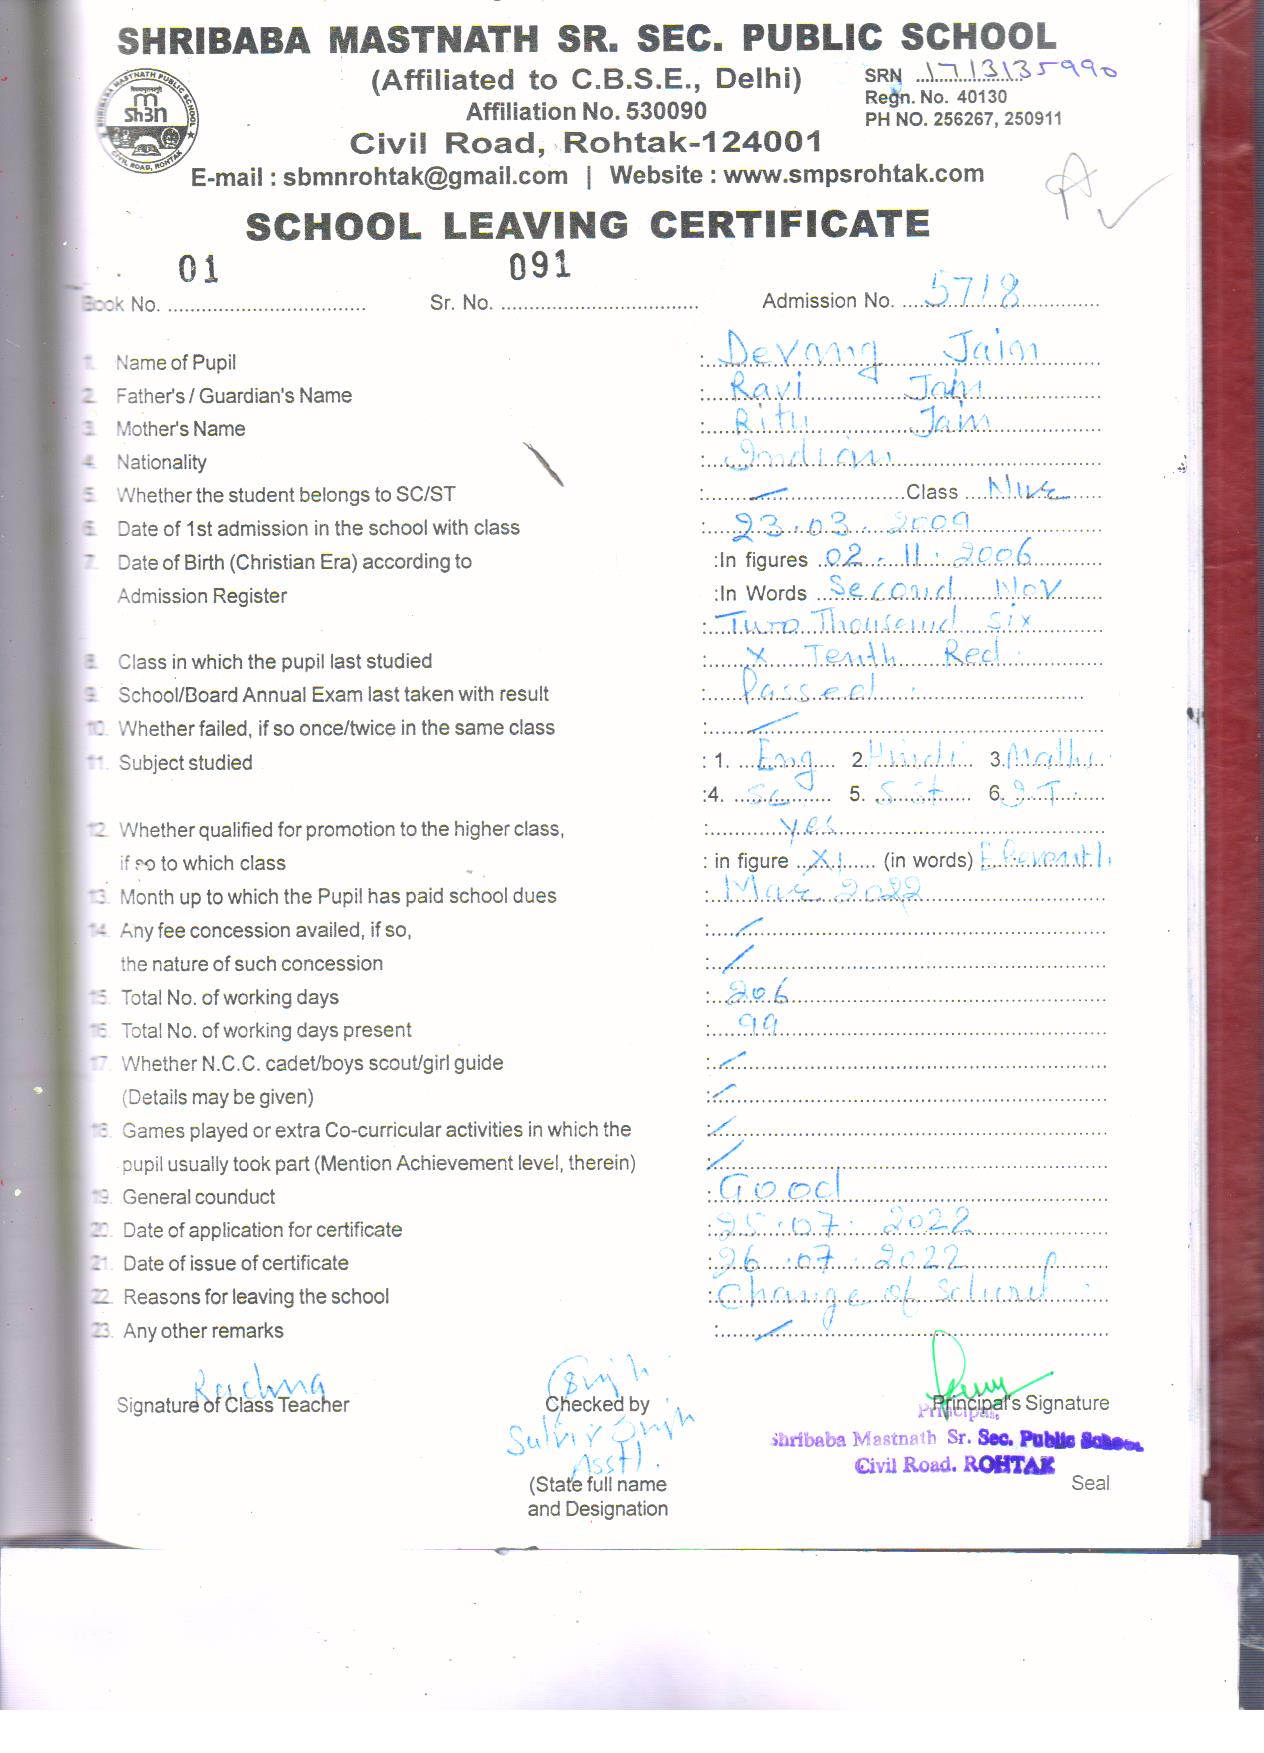 SHRIBABA MASTNATH SR. SEC. PUBLIC SCHOOL
(Affiliated to C.B.S.E., Delhi)
SRN 1713135990
Affiliation No. 530090
Regn. No. 40130
Civil Road, Rohtak-124001
PH NO. 256267, 250911
E-mail : sbmnrohtak@gmail.com | Website : www.smpsrohtak.com
SCHOOL LEAVING CERTIFICATE
Book No. 01 Sr. No. 091 Admission No. 5718
1. Name of Pupil : Devang Jain
2. Father's / Guardian's Name : Ravi Jain
3. Mother's Name : Ritu Jain
4. Nationality : Indian
5. Whether the student belongs to SC/ST : — Class Nur
6. Date of 1st admission in the school with class : 23.03.2009
7. Date of Birth (Christian Era) according to :In figures 02-11-2006
Admission Register :In Words Second Nov
: Two Thousand Six
8. Class in which the pupil last studied : X Tenth Red
9. School/Board Annual Exam last taken with result : Passed
10. Whether failed, if so once/twice in the same class : —
11. Subject studied : 1. Eng 2. Hindi 3. Maths
:4. Sc 5. S.St 6. I.T.
12. Whether qualified for promotion to the higher class, : yes
if so to which class : in figure XI (in words) Eleventh
13. Month up to which the Pupil has paid school dues : Mar 2022
14. Any fee concession availed, if so, : /
the nature of such concession : /
15. Total No. of working days : 206
16. Total No. of working days present : 99
17. Whether N.C.C. cadet/boys scout/girl guide : /
(Details may be given) : /
18. Games played or extra Co-curricular activities in which the : /
pupil usually took part (Mention Achievement level, therein) : /
19. General counduct : Good
20. Date of application for certificate : 25.07.2022
21. Date of issue of certificate : 26.07.2022
22. Reasons for leaving the school : Change of School
23. Any other remarks : —
Rachna
Signature of Class Teacher Checked by Principal's Signature
Principal,
Shribaba Mastnath Sr. Sec. Public School
Civil Road. ROHTAK
Asstt.
(State full name Seal
and Designation